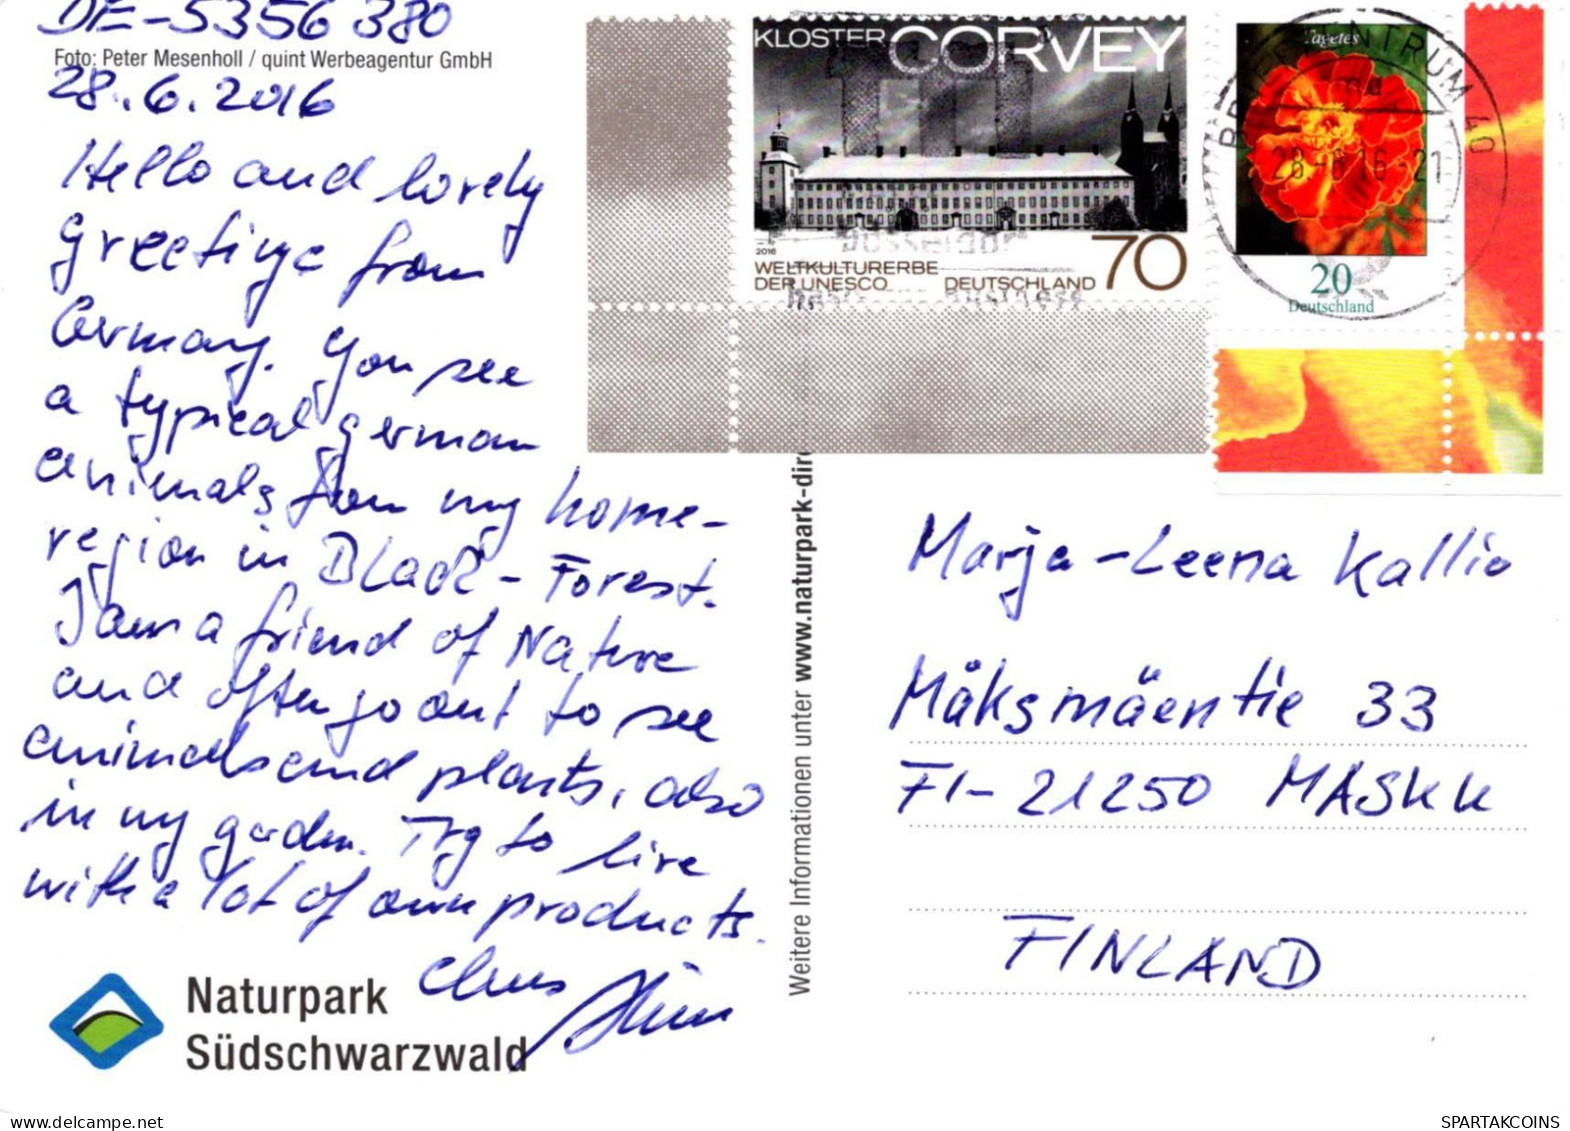 DE-5356 380
Foto: Peter Mesenholl / quint Werbeagentur GmbH
28.6.2016
Hello and lovely
greetings from
Germany. You see
a typical german
animals from my home-
region in Black-Forest.
I am a friend of Nature
and often go out to see
animals and plants, also
in my garden. Try to live
with a lot of own products.
Naturpark
Südschwarzwald
Weitere Informationen unter www.naturpark-dire
KLOSTER CORVEY
2016
WELTKULTURERBE
DER UNESCO
DEUTSCHLAND 70
Tagetes
20
Deutschland
BRIEFZENTRUM 40
28-6 16-21
Marja-Leena Kallio
Mäksmäentie 33
FI-21250 MASKU
FINLAND
SPARTAKCOINS